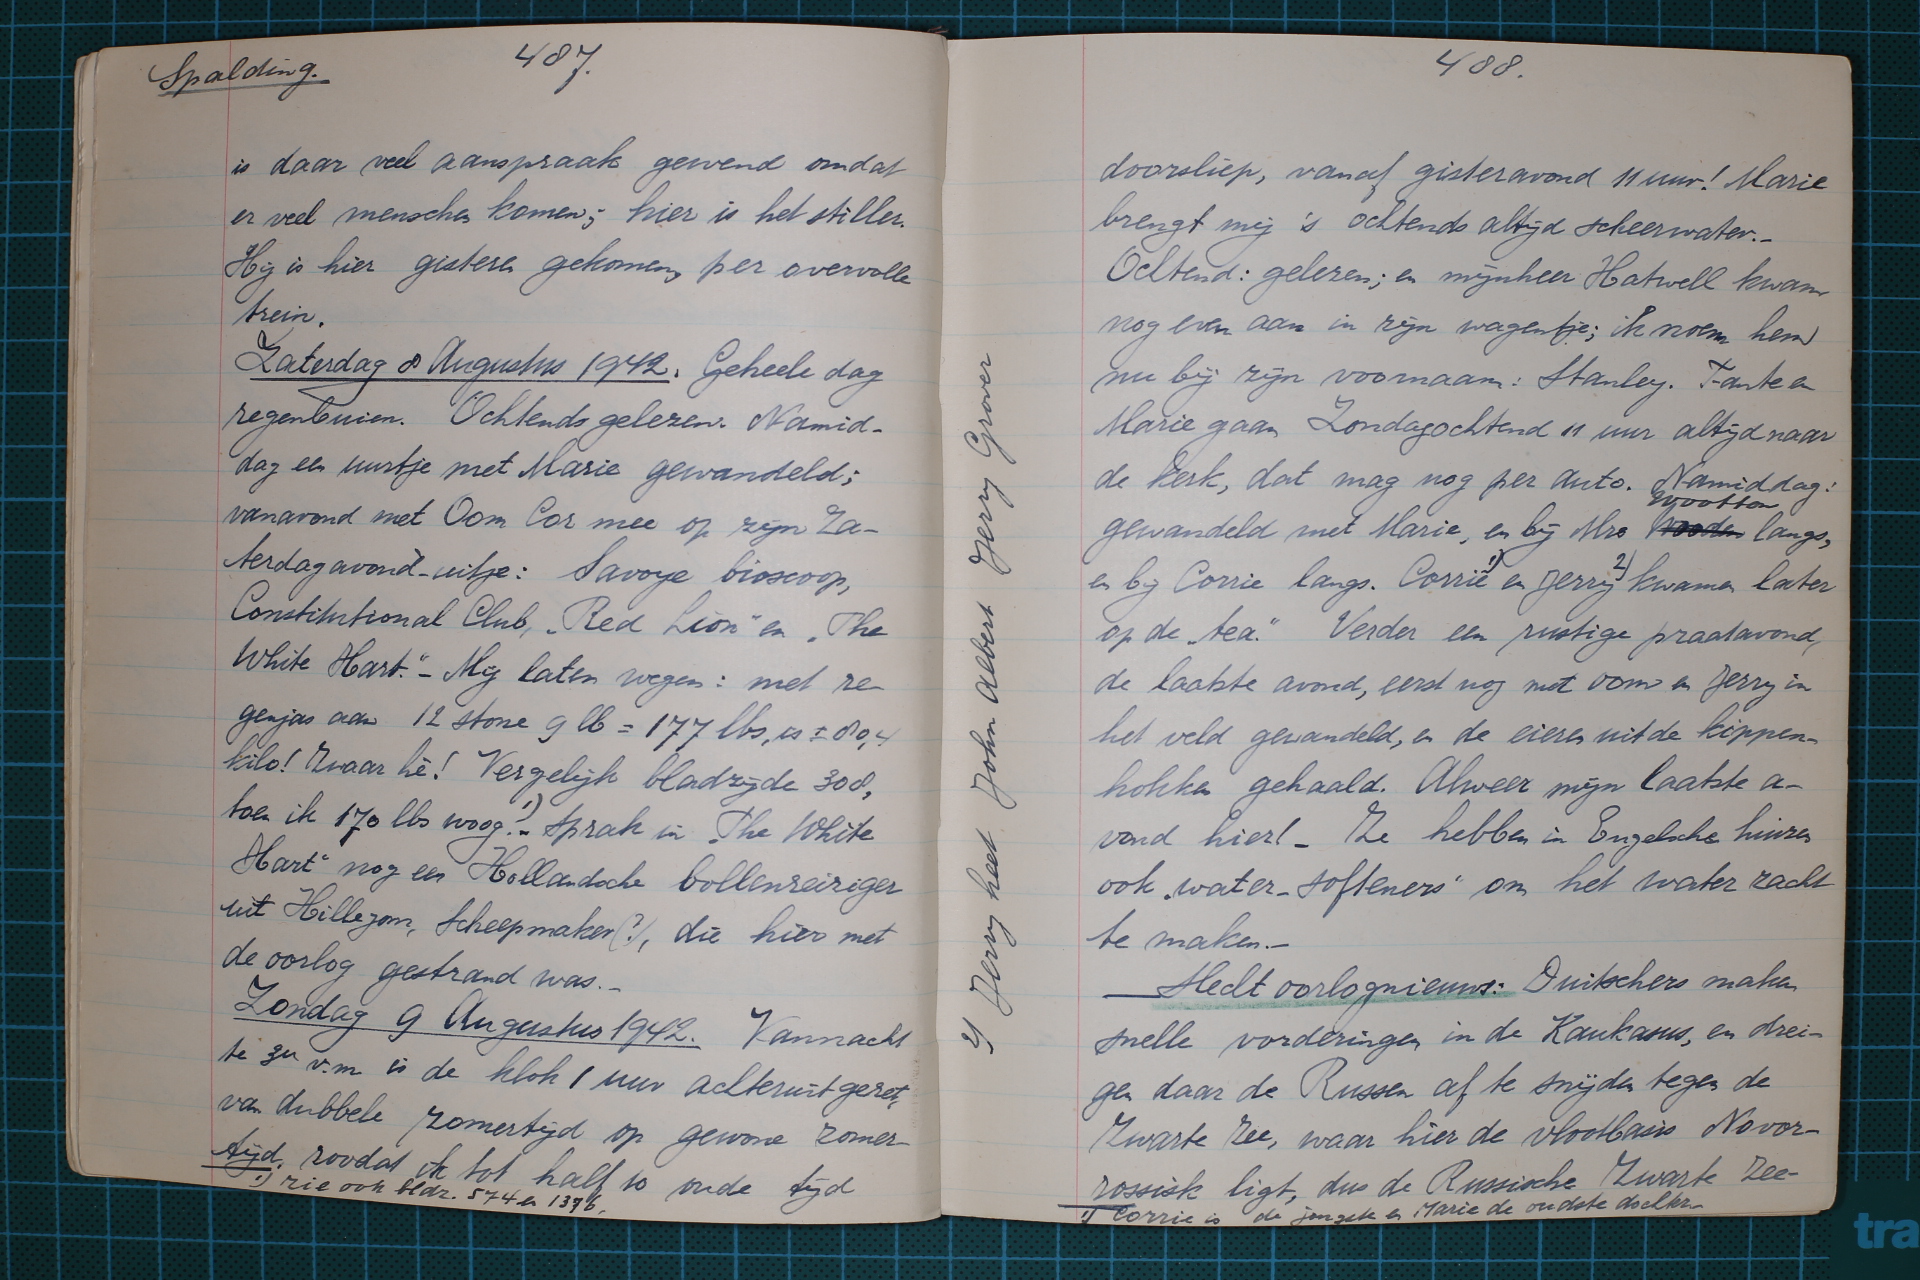 Spalding.
487.
is daar veel aanspraak gewend omdat
er veel menschen komen; hier is het stiller.
Hij is hier gisteren gekomen, per overvolle
trein.
Zaterdag 8 Augustus 1942. Geheele dag
regenbuien. Ochtends gelezen. Namid-
dag een uurtje met Marie gewandeld;
vanavond met Oom Cor mee op zijn Za-
terdagavond-uitje: Savoye bioscoop,
Constitutional Club, „Red Lion" en „The
White Hart." - Mij laten wegen: met re-
genjas aan 12 stone 9 lb = 177 lbs, is ± 80,4
kilo! Zwaar hè! Vergelijk bladzijde 308,
toen ik 170 lbs woog! 1) - Sprak in „The White
Hart" nog een Hollandsche bollenreiziger
uit Hillegom, Scheepmaker (?), die hier met
de oorlog gestrand was. -
Zondag 9 Augustus 1942. Vannacht
te 3u v.m is de klok 1 uur achteruitgezet,
van dubbele zomertijd op gewone zomer-
tijd, zoodat ik tot half 10 oude tijd
1) zie ook bldz. 574 en 1376.
2) Jerry heet John Albert Jerry Grover
488.
doorsliep, vanaf gisteravond 11 uur! Marie
brengt mij 's ochtends altijd scheerwater. -
Ochtend: gelezen; en mijnheer Hatwell kwam
nog even aan in zijn wagentje; ik noem hem
nu bij zijn voornaam: Stanley. Tante en
Marie gaan Zondagochtend 11 uur altijd naar
de kerk, dat mag nog per auto. Namiddag:
gewandeld met Marie, en bij Mrs Wootton langs,
en bij Corrie langs. Corrie 1) en Jerry 2) kwamen later
op de „tea." Verder een rustige praatavond,
de laatste avond, eerst nog met oom en Jerry in
het veld gewandeld, en de eieren uit de kippen-
hokken gehaald. Alweer mijn laatste a-
vond hier! - Ze hebben in Engelsche huizen
ook „water-softeners" om het water zacht
te maken. -
Slecht oorlognieuws: Duitschers maken
snelle vorderingen in de Kaukasus, en drei-
gen daar de Russen af te snijden tegen de
Zwarte Zee, waar hier de vlootbasis Novor-
rossisk ligt, dus de Russische Zwarte Zee-
1) Corrie is de jongste en Marie de oudste dochter
tra